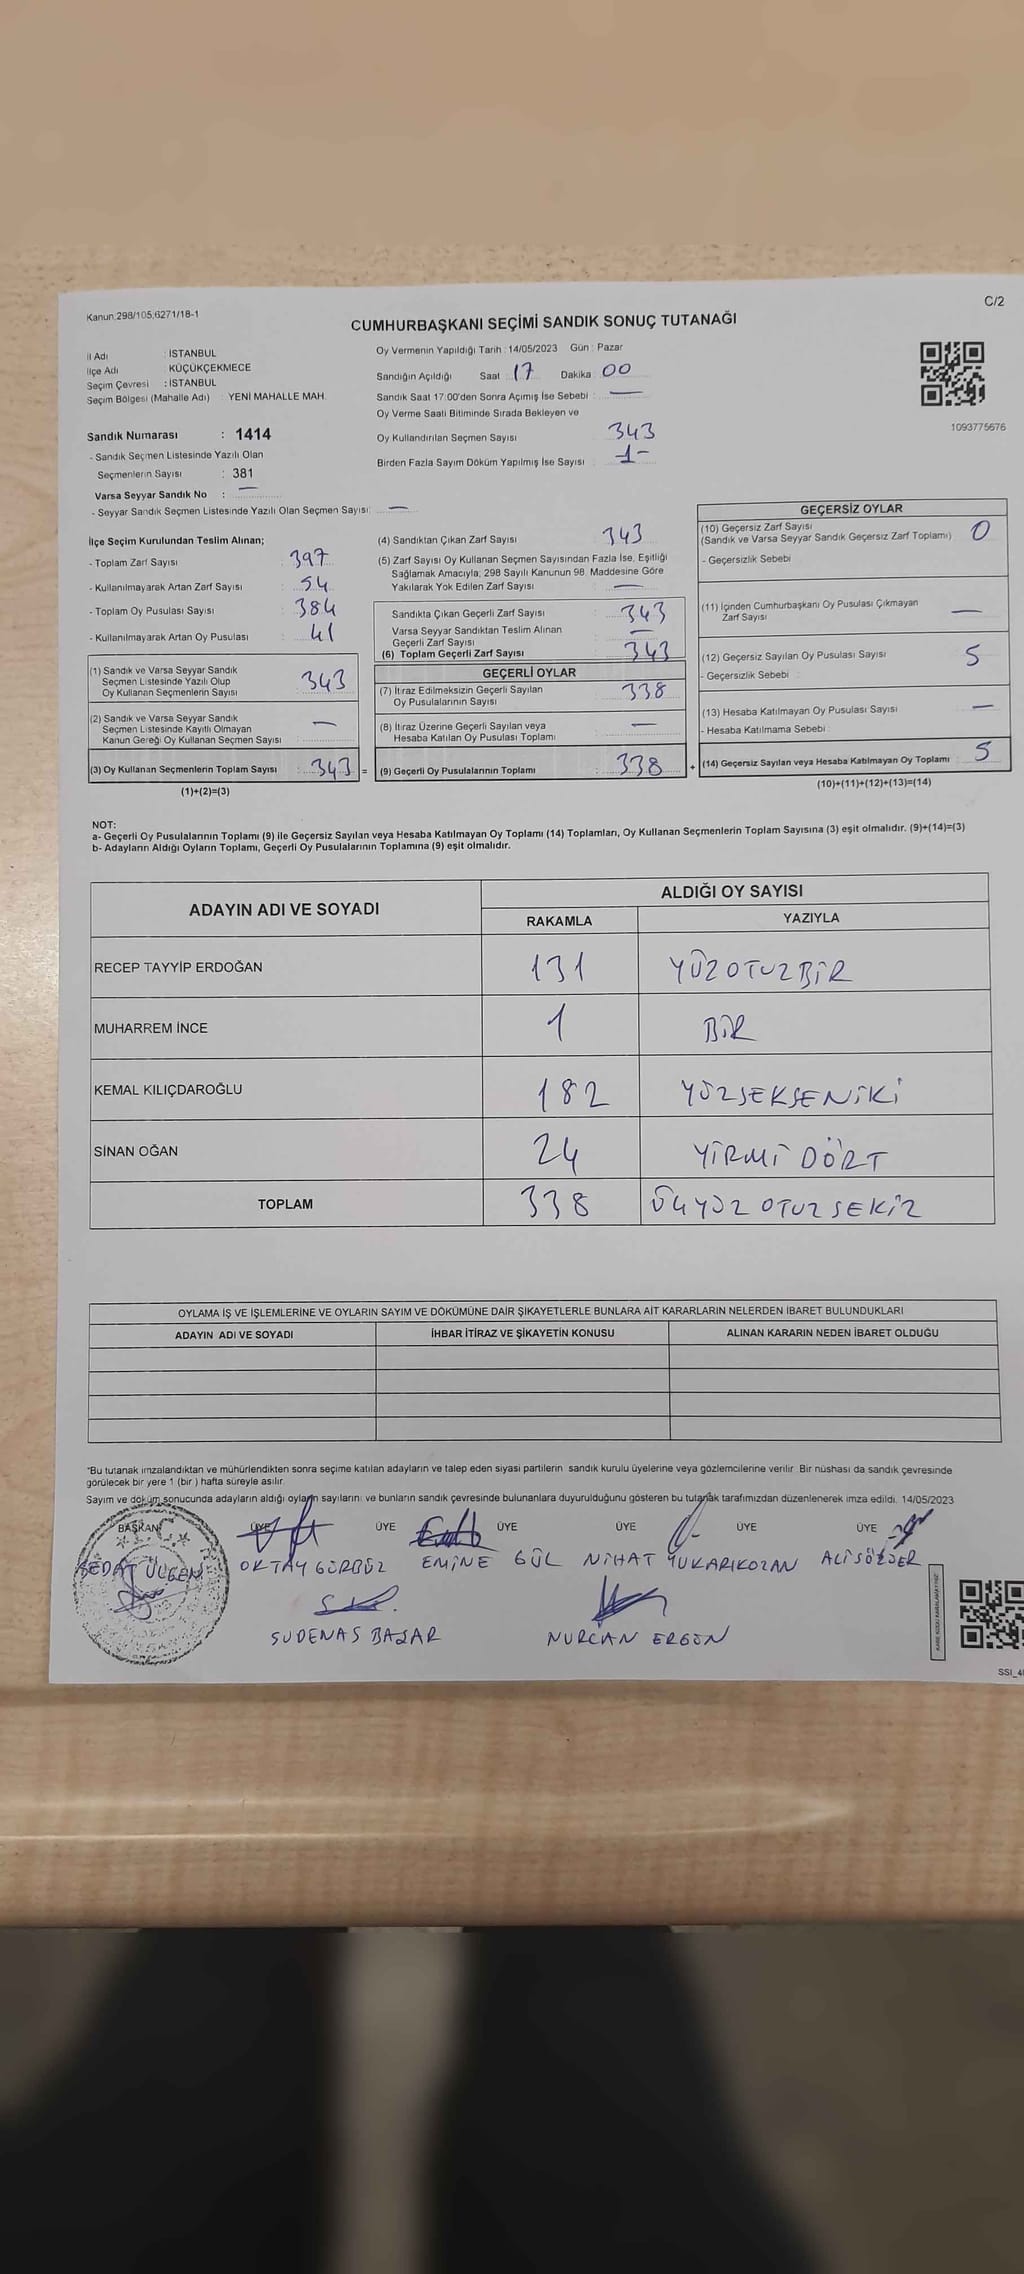 Kanun:298/105,6271/18-1
C/2
CUMHURBAŞKANI SEÇİMİ SANDIK SONUÇ TUTANAĞI
İl Adı : İSTANBUL
İlçe Adı : KÜÇÜKÇEKMECE
Seçim Çevresi : İSTANBUL
Seçim Bölgesi (Mahalle Adı) : YENİ MAHALLE MAH.
Sandık Numarası : 1414
- Sandık Seçmen Listesinde Yazılı Olan
Seçmenlerin Sayısı : 381
Varsa Seyyar Sandık No : —
- Seyyar Sandık Seçmen Listesinde Yazılı Olan Seçmen Sayısı: —
Oy Vermenin Yapıldığı Tarih : 14/05/2023 Gün : Pazar
Sandığın Açıldığı Saat : 17 Dakika : 00
Sandık Saat 17:00'den Sonra Açımış İse Sebebi : —
Oy Verme Saati Bitiminde Sırada Bekleyen ve
Oy Kullandırılan Seçmen Sayısı : 343
Birden Fazla Sayım Döküm Yapılmış İse Sayısı : -1-
1093775676
İlçe Seçim Kurulundan Teslim Alınan;
- Toplam Zarf Sayısı : 397
- Kullanılmayarak Artan Zarf Sayısı : 54
- Toplam Oy Pusulası Sayısı : 384
- Kullanılmayarak Artan Oy Pusulası : 41
(1) Sandık ve Varsa Seyyar Sandık
Seçmen Listesinde Yazılı Olup
Oy Kullanan Seçmenlerin Sayısı : 343
(2) Sandık ve Varsa Seyyar Sandık
Seçmen Listesinde Kayıtlı Olmayan
Kanun Gereği Oy Kullanan Seçmen Sayısı : —
(3) Oy Kullanan Seçmenlerin Toplam Sayısı : 343 =
(1)+(2)=(3)
(4) Sandıktan Çıkan Zarf Sayısı : 343
(5) Zarf Sayısı Oy Kullanan Seçmen Sayısından Fazla İse, Eşitliği
Sağlamak Amacıyla; 298 Sayılı Kanunun 98. Maddesine Göre
Yakılarak Yok Edilen Zarf Sayısı : —
Sandıkta Çıkan Geçerli Zarf Sayısı : 343
Varsa Seyyar Sandıktan Teslim Alınan
Geçerli Zarf Sayısı : —
(6) Toplam Geçerli Zarf Sayısı : 343
GEÇERLİ OYLAR
(7) İtiraz Edilmeksizin Geçerli Sayılan
Oy Pusulalarının Sayısı : 338
(8) İtiraz Üzerine Geçerli Sayılan veya
Hesaba Katılan Oy Pusulası Toplamı : —
(9) Geçerli Oy Pusulalarının Toplamı : 338 +
GEÇERSİZ OYLAR
(10) Geçersiz Zarf Sayısı
(Sandık ve Varsa Seyyar Sandık Geçersiz Zarf Toplamı) : 0
- Geçersizlik Sebebi
(11) İçinden Cumhurbaşkanı Oy Pusulası Çıkmayan
Zarf Sayısı : —
(12) Geçersiz Sayılan Oy Pusulası Sayısı : 5
- Geçersizlik Sebebi :
(13) Hesaba Katılmayan Oy Pusulası Sayısı : —
- Hesaba Katılmama Sebebi :
(14) Geçersiz Sayılan veya Hesaba Katılmayan Oy Toplamı : 5
(10)+(11)+(12)+(13)=(14)
NOT:
a- Geçerli Oy Pusulalarının Toplamı (9) ile Geçersiz Sayılan veya Hesaba Katılmayan Oy Toplamı (14) Toplamları, Oy Kullanan Seçmenlerin Toplam Sayısına (3) eşit olmalıdır. (9)+(14)=(3)
b- Adayların Aldığı Oyların Toplamı, Geçerli Oy Pusulalarının Toplamına (9) eşit olmalıdır.
ADAYIN ADI VE SOYADI ALDIĞI OY SAYISI
RAKAMLA YAZIYLA
RECEP TAYYİP ERDOĞAN 131 YÜZOTUZBİR
MUHARREM İNCE 1 BİR
KEMAL KILIÇDAROĞLU 182 YÜZSEKSENİKİ
SİNAN OĞAN 24 YİRMİ DÖRT
TOPLAM 338 ÜÇYÜZ OTUZ SEKİZ
OYLAMA İŞ VE İŞLEMLERİNE VE OYLARIN SAYIM VE DÖKÜMÜNE DAİR ŞİKAYETLERLE BUNLARA AİT KARARLARIN NELERDEN İBARET BULUNDUKLARI
ADAYIN ADI VE SOYADI İHBAR İTİRAZ VE ŞİKAYETİN KONUSU ALINAN KARARIN NEDEN İBARET OLDUĞU
"Bu tutanak imzalandıktan ve mühürlendikten sonra seçime katılan adayların ve talep eden siyasi partilerin sandık kurulu üyelerine veya gözlemcilerine verilir. Bir nüshası da sandık çevresinde
görülecek bir yere 1 (bir ) hafta süreyle asılır.
Sayım ve döküm sonucunda adayların aldığı oyların sayılarını ve bunların sandık çevresinde bulunanlara duyurulduğunu gösteren bu tutanak tarafımızdan düzenlenerek imza edildi. 14/05/2023
BAŞKAN ÜYE ÜYE ÜYE ÜYE ÜYE ÜYE
SEDAT ÜLGEN OKTAY GÜRBÜZ EMİNE GÜL NİHAT YUKARIKOZAN ALİ SÖZER
SUDENAS BAŞAR NURCAN ERGÜN